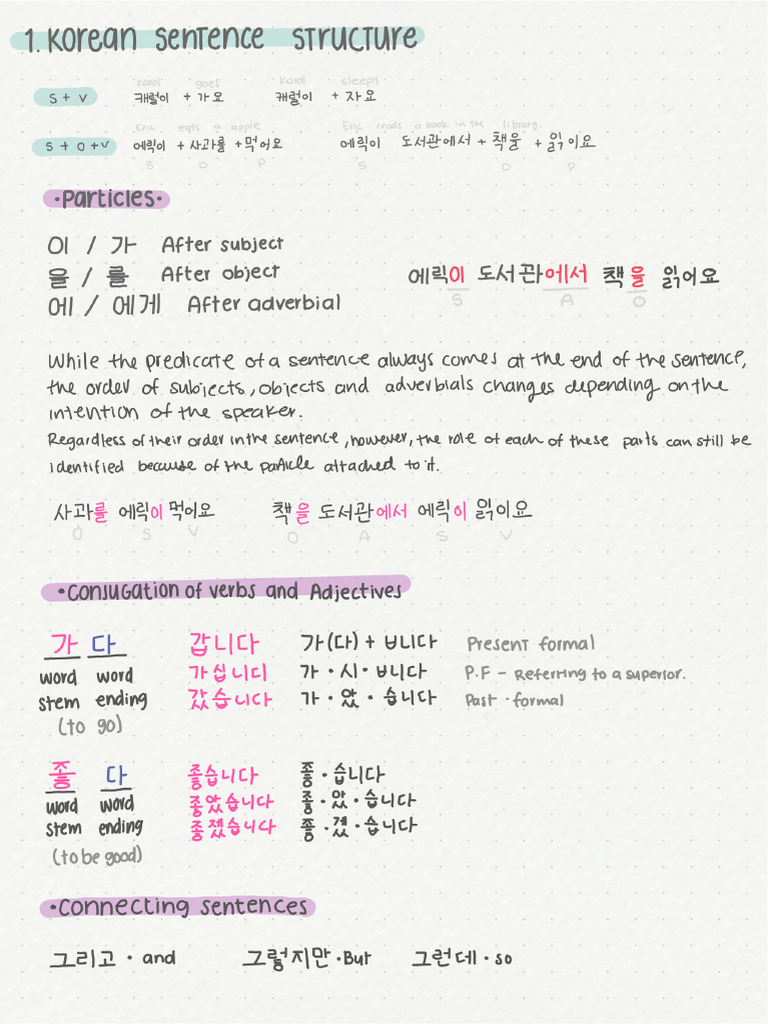 1. Korean Sentence Structure
Karol goes Karol sleeps
S + V 캐럴이 + 가요 캐럴이 + 자요
Eric eats a apple Eric reads a book in the library.
S + O + V 에릭이 + 사과를 + 먹어요 에릭이 도서관에서 + 책을 + 읽이요
S O P S O P
• Particles •
이 / 가 After subject
을 / 를 After object
에릭이 도서관에서 책을 읽어요
에 / 에게 After adverbial
S A O
While the predicate of a sentence always comes at the end of the sentence,
the order of subjects, objects and adverbials changes depending on the
intention of the speaker.
Regardless of their order in the sentence, however, the role of each of these parts can still be
identified because of the particle attached to it.
사과를 에릭이 먹어요 책을 도서관에서 에릭이 읽이요
O S V O A S V
• Conjugation of verbs and Adjectives
가 다 갑니다 가(다) + ㅂ니다 Present formal
word word 가십니디 가 • 시 • ㅂ니다 P.F - Referring to a superior.
stem ending 갔습니다 가 • 았 • 습니다 Past • formal
(to go)
좋 다 좋습니다 좋 • 습니다
word word 좋았습니다 좋 • 았 • 습니다
stem ending 좋겠습니다 좋 • 겠 • 습니다
(to be good)
• Connecting sentences
그리고 • and 그렇지만 • But 그런데 • so